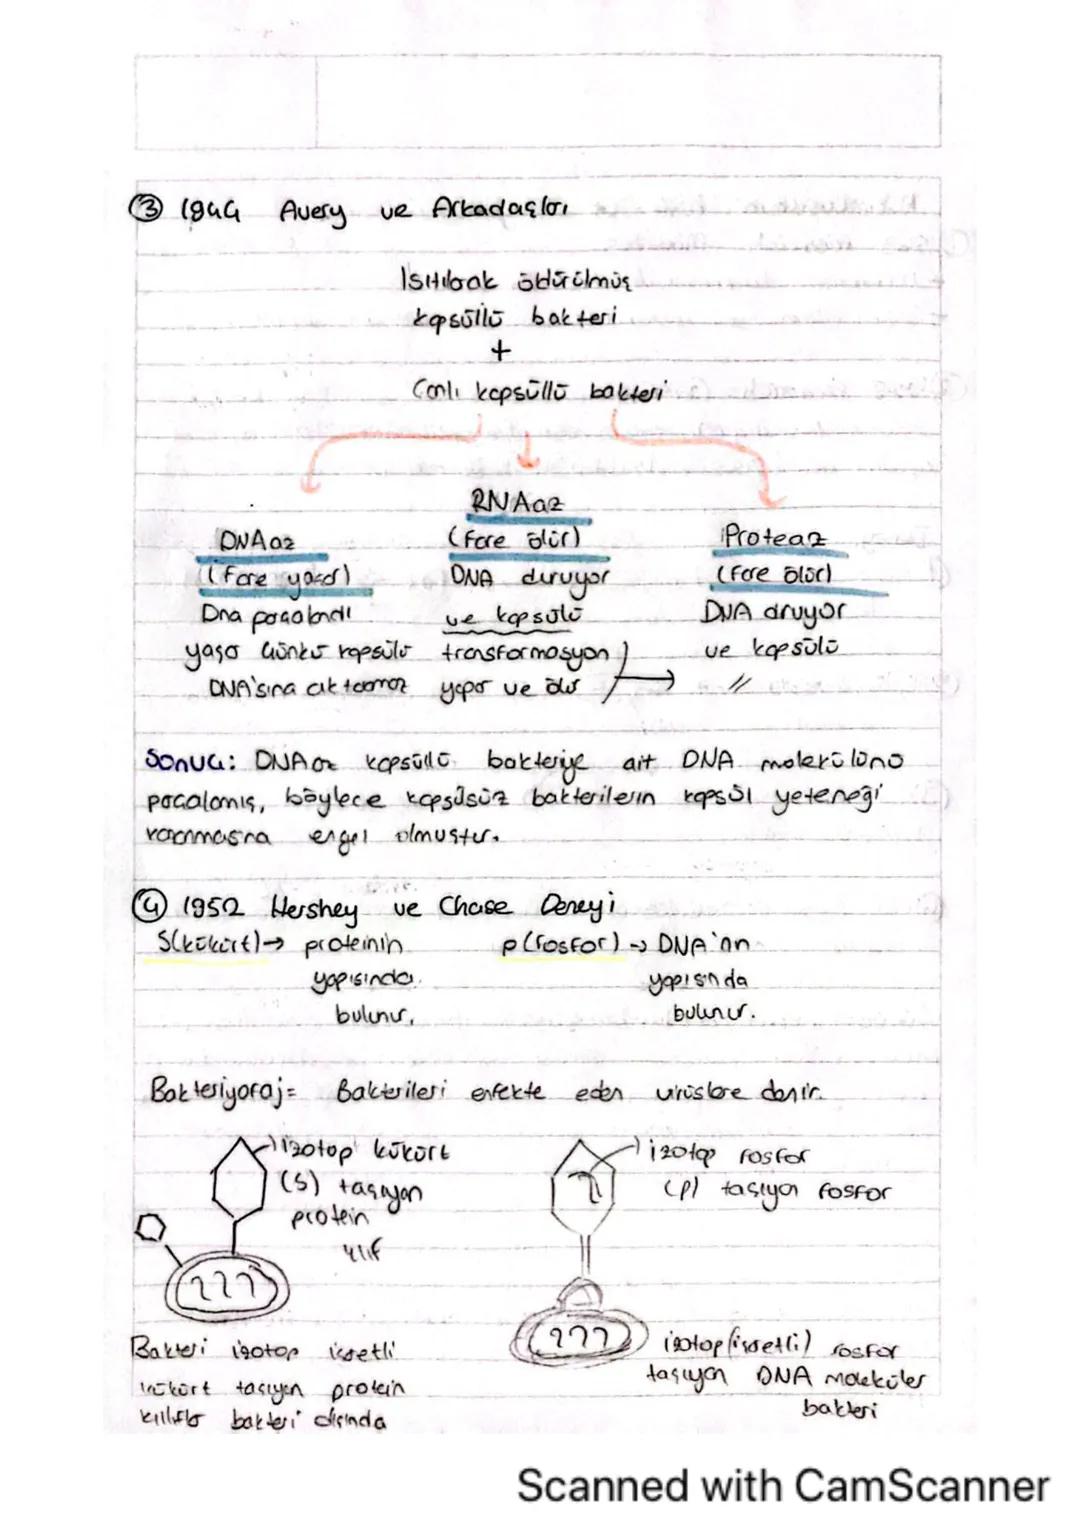 ③ 1944 Avery ve Arkadaşları
Isıtılarak öldürülmüş
kapsüllü bakteri
+
Canlı kapsüllü bakteri
DNAaz
(Fare yaşar)
Dna parçalandı
yaşar Çünkü kapsülü
DNA'sına aktaramaz
RNAaz
(Fare ölür)
DNA duruyor
ve kapsülü
transformasyon
yapar ve ölür
Proteaz
(Fare ölür)
DNA druyor
ve kapsülü
//
Sonuç: DNAaz kapsüllü bakteriye ait DNA molekülünü
parçalamış, böylece kapsülsüz bakterilerin kapsül yeteneği
kazanmasına engel olmuştur.
④ 1952 Hershey ve Chase Deneyi
S(kükürt)→ proteinin
yapısında
bulunur.
p(fosfor) → DNA'nın
yapısında
bulunur.
Bakteriyofaj= Bakterileri enfekte eden virüslere denir.
izotop kükürt
(S) taşıyan
protein
kılıf
izotop fosfor
(P) taşıyan fosfor
Bakteri izotop işaretli
kükürt taşıyan protein
kılıflar bakteri dışında
izotop(işaretli) fosfor
taşıyan DNA moleküler
bakteri
Scanned with CamScanner